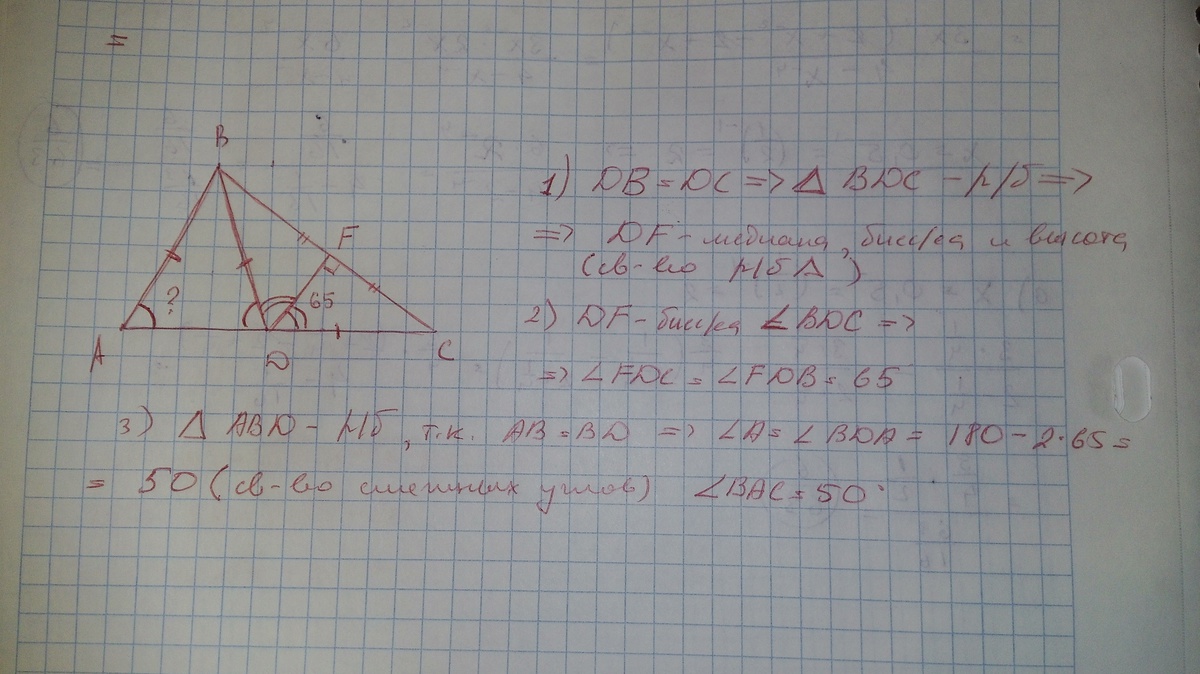 =
B
F
65
?
A
D
C
1) DB = DC => Δ BDC - р/б =>
=> DF - медиана, бисс/са и высота
(св-во р/б Δ)
2) DF - бисс/са ∠BDC =>
=> ∠FDC = ∠FDB = 65
3) Δ ABD - р/б, т.к. AB = BD => ∠A = ∠BDA = 180 - 2·65 =
= 50 (св-во смежных углов) ∠BAC = 50°